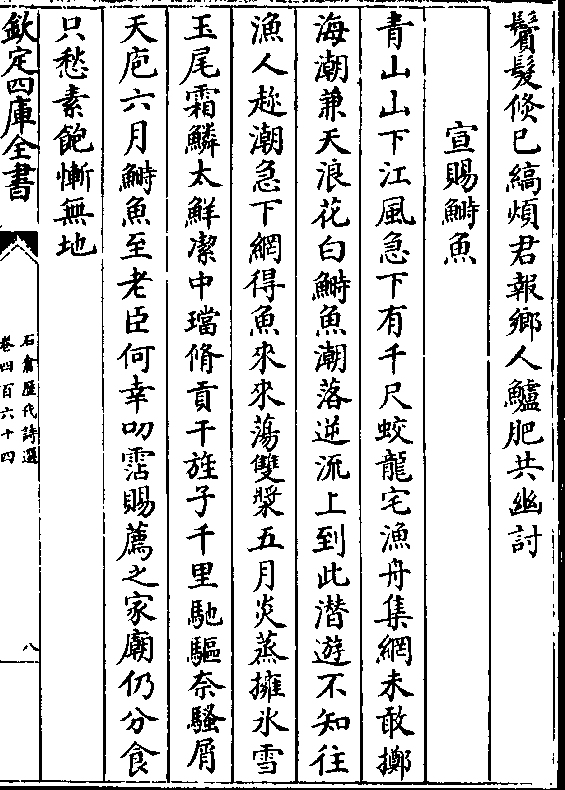 鬢髮倐已縞煩君報鄉人鱸肥共幽討
宣賜鰣魚
青山山下江風急下有千尺蛟龍宅漁舟集網未敢擲
海潮兼天浪花白鰣魚潮落逆流上到此潜遊不知往
漁人趂潮急下網得魚來來蕩雙槳五月炎蒸擁氷雪
玉尾霜鱗太鮮潔中璫脩貢干旌孑千里馳驅奈騷屑
天庖六月鰣魚至老臣何幸叨霑賜薦之家廟仍分食
只愁素飽慚無地
欽定四庫全書
石倉歷代詩選
卷四百六十四
八